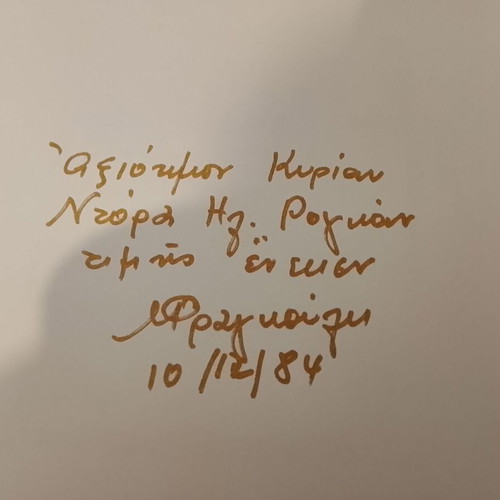 Ἀξιότιμον Κυρίαν
Ντόρα Ηλ. Ρογκάν
τιμῆς ἕνεκεν
ΜΦραγκούλη
10/12/84